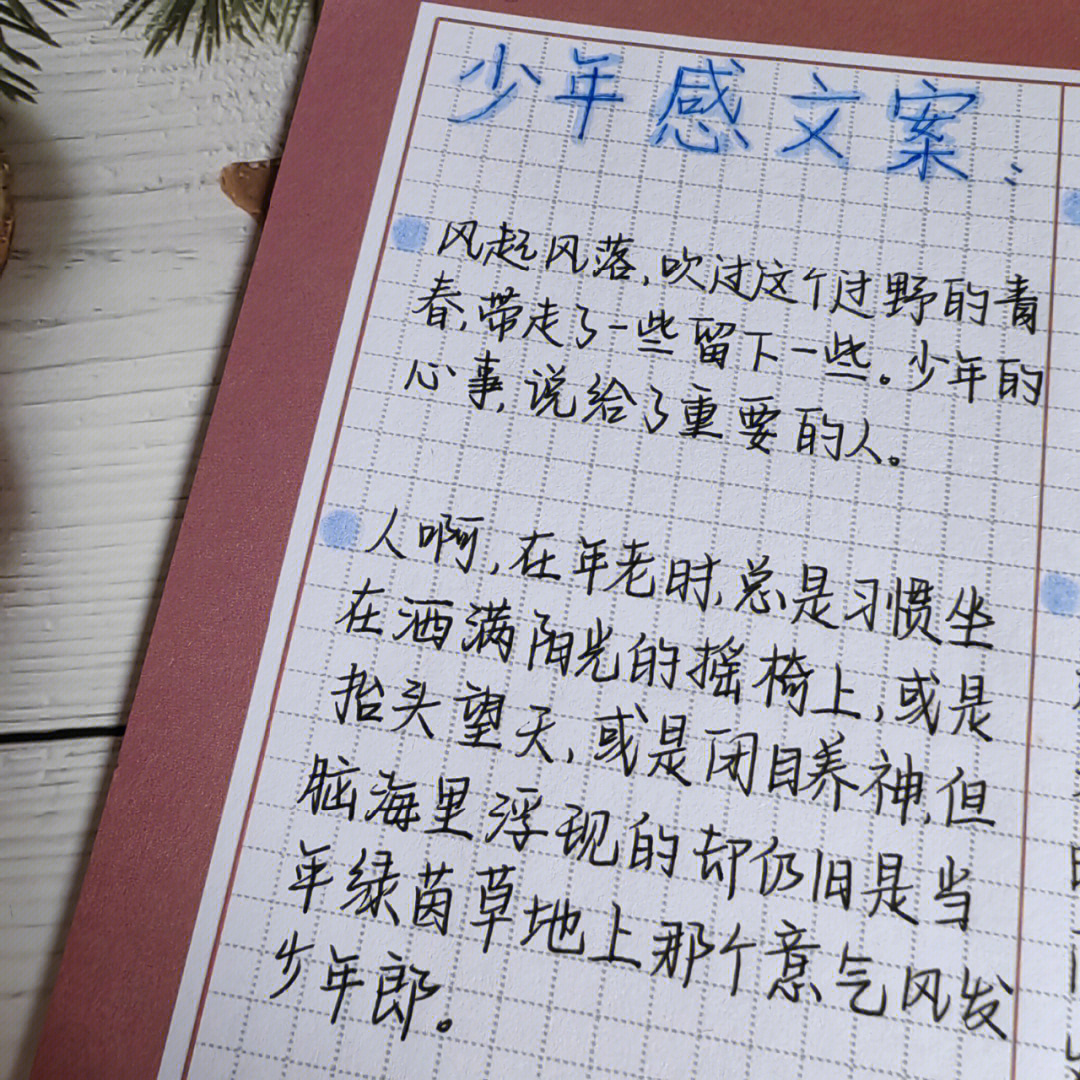 少年感文案：
风起风落，吹过这个过野的青
春，带走了一些留下一些。少年的
心事，说给了重要的人。
人啊，在年老时，总是习惯坐
在洒满阳光的摇椅上，或是
抬头望天，或是闭目养神，但
脑海里浮现的却仍旧是当
年绿茵草地上那个意气风发
少年郎。